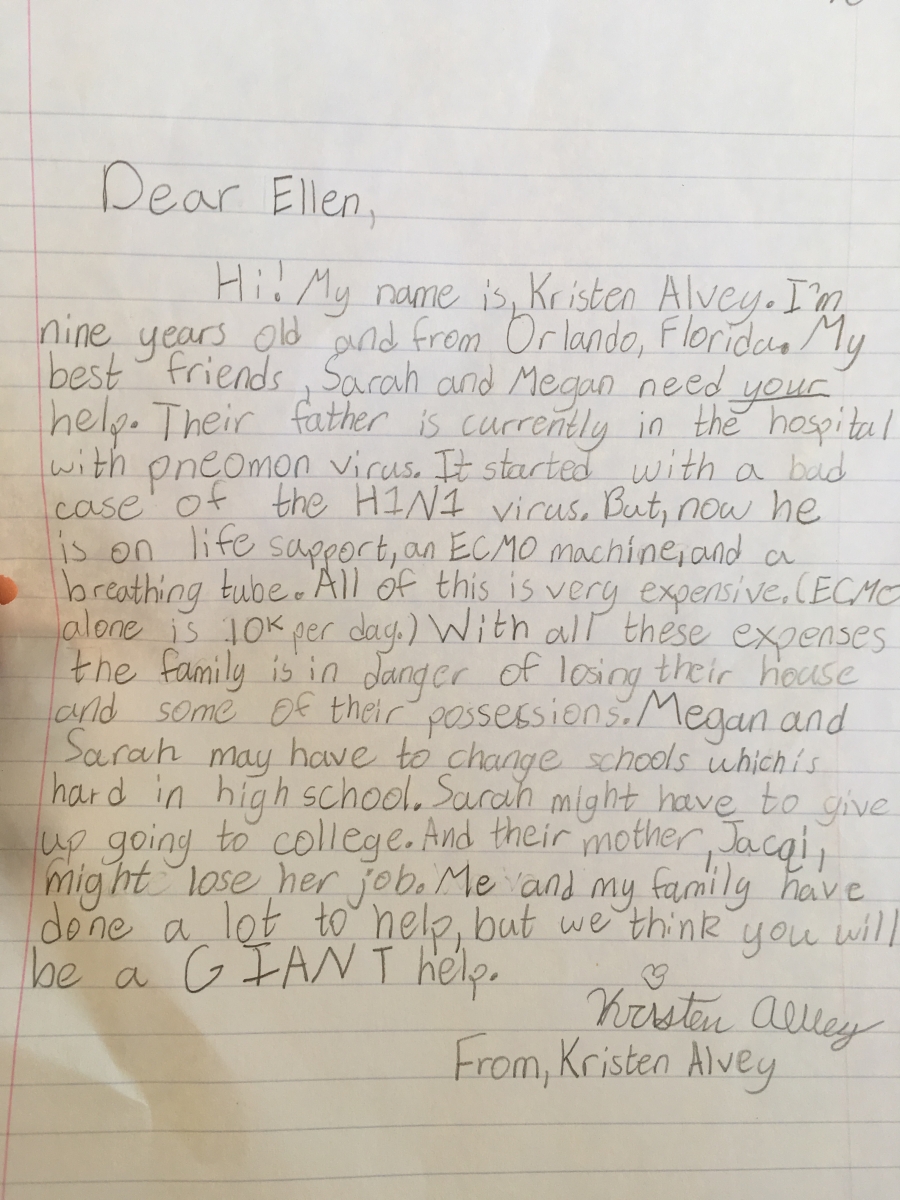 Dear Ellen,
Hi! My name is, Kristen Alvey. I'm
nine years old and from Orlando, Florida. My
best friends, Sarah and Megan need your
help. Their father is currently in the hospital
with pneomon virus. It started with a bad
case of the H1N1 virus. But, now he
is on life support, an ECMO machine, and a
breathing tube. All of this is very expensive. (ECMO
alone is 10K per day.) With all these expenses
the family is in danger of losing their house
and some of their possessions. Megan and
Sarah may have to change schools which is
hard in high school. Sarah might have to give
up going to college. And their mother, Jacqi,
might lose her job. Me and my family have
done a lot to help, but we think you will
be a GIANT help.
Kristen Alvey
From, Kristen Alvey